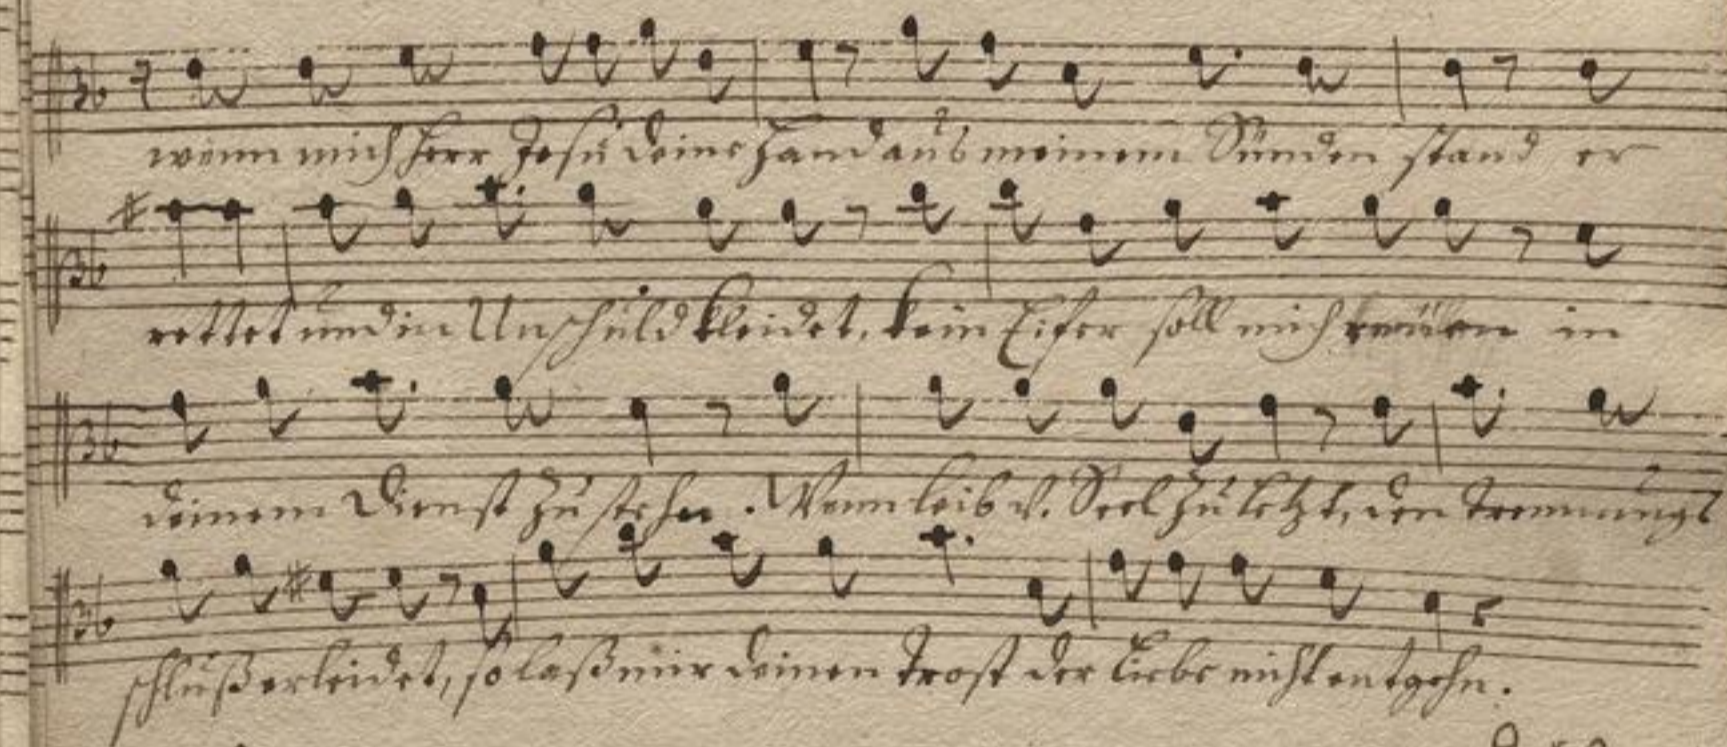 wenn mich Herr Jesu deine Hand aus meinem Sünden stand er
rettet und in Unschuld kleidet, kein Eifer soll mich in
deinem Dienst zu stehn. Wenn leib v. Seel zu letzt, den Trennungs
schluß erleidet, so laß mir deinen Trost der Liebe nicht entgehn.